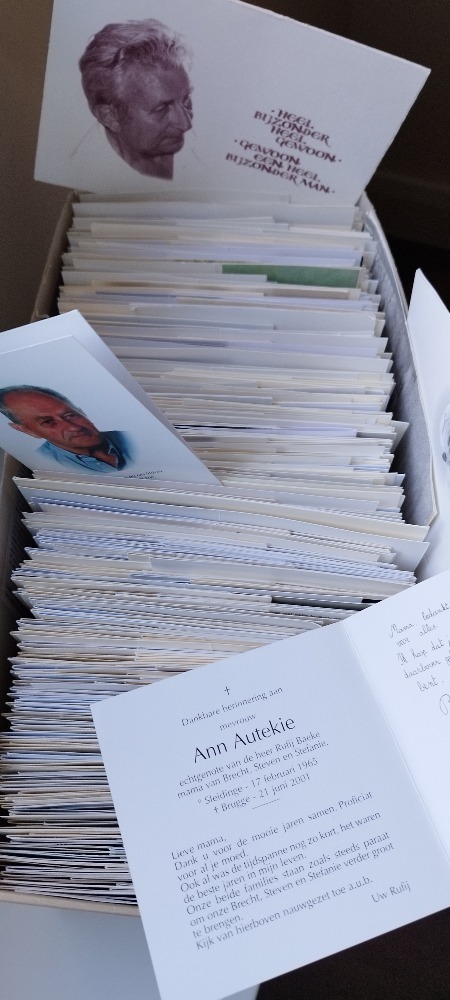 · HEEL
BIJZONDER
HEEL
GEWOON ·
· GEWOON
EEN HEEL
BIJZONDER MAN ·
✝
Dankbare herinnering aan
mevrouw
Ann Autekie
echtgenote van de heer Rufij Baeke
mama van Brecht, Steven en Stefanie.
° Sleidinge - 17 februari 1965
✝ Brugge - 21 juni 2001
Lieve mama,
Dank u voor de mooie jaren samen. Proficiat
voor al je moed.
Ook al was de tijdspanne nog zo kort, het waren
de beste jaren in mijn leven.
Onze beide families staan zoals steeds paraat
om onze Brecht, Steven en Stefanie verder groot
te brengen.
Kijk van hierboven nauwgezet toe a.u.b.
Uw Rufij
Mama bedankt
voor alles.
Ik hoop dat
daarboven
bent.